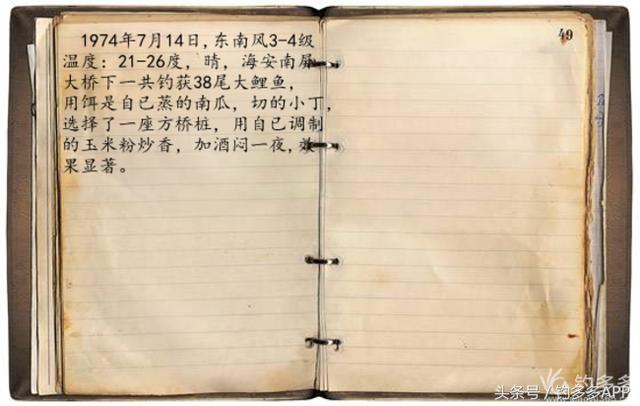 1974年7月14日,东南风3-4级
温度：21-26度，晴，海安南屏
大桥下一共钓获38尾大鲤鱼，
用饵是自己蒸的南瓜，切的小丁，
选择了一座方桥桩，用自己调制
的玉米粉炒香，加酒闷一夜,效
果显著。
49
钓多多
头条号／钓多多APP